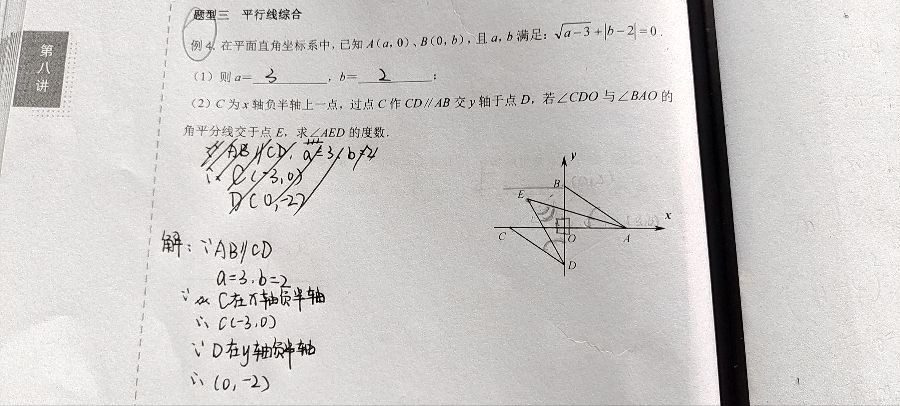 题型三 平行线综合
例 4. 在平面直角坐标系中，已知 A(a, 0)、B(0, b)，且 a, b 满足：√a-3+|b-2|=0.
(1) 则 a= 3 , b= 2 ;
(2) C 为 x 轴负半轴上一点，过点 C 作 CD∥AB 交 y 轴于点 D，若∠CDO 与∠BAO 的
角平分线交于点 E，求∠AED 的度数.
∵ AB∥CD, a=3, b=2
∴ C(-3,0)
D(0,-2)
解：∵AB∥CD
a=3, b=2
∵ C在x轴负半轴
∴ C(-3,0)
∵ D在y轴负半轴
∴ (0,-2)
第
八
讲
y
B
E
x
C
O
A
D